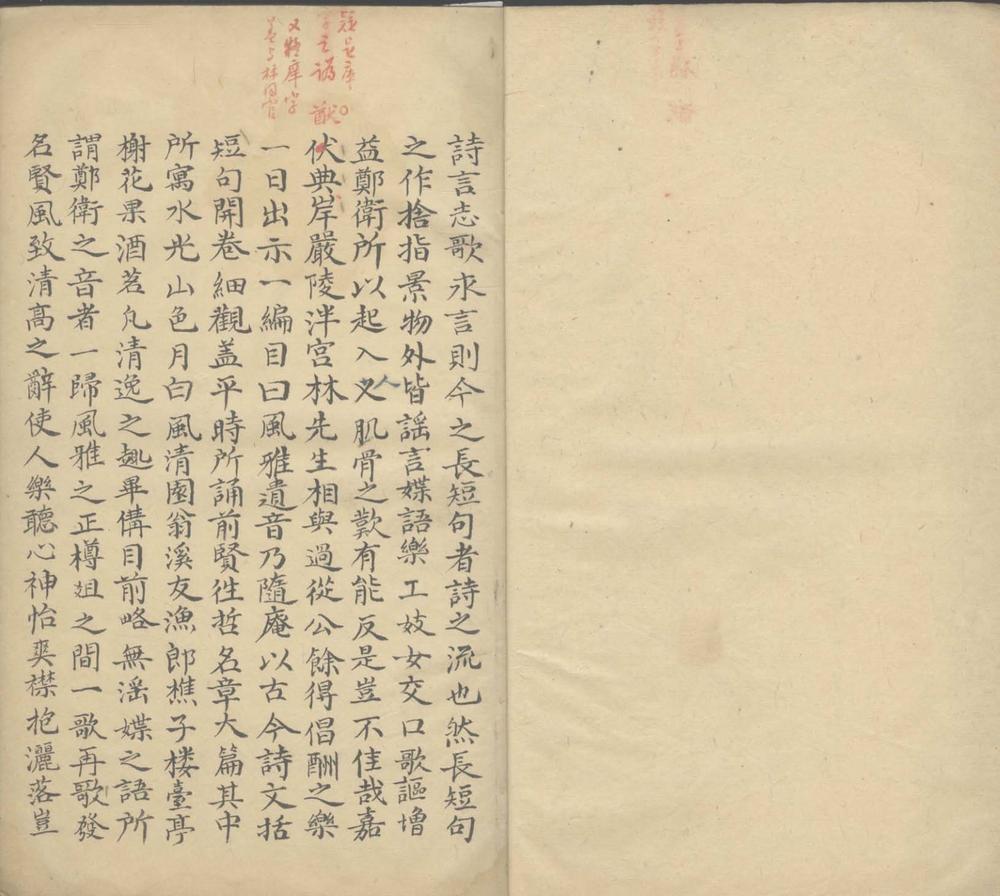 詩言志歌永言則今之長短句者詩之流也然長短句
之作捨指景物外皆謡言媟語樂工妓女交口歌謳増
益鄭衛所以起入人又肌骨之歎有能反是豈不佳哉嘉
伏典岸嚴陵泮宫林先生相與過從公餘得倡酬之樂
一日出示一編目曰風雅遺音乃隨庵以古今詩文括
短句開卷細觀盖平時所誦前賢徃哲名章大篇其中
所寓水光山色月白風清園翁溪友漁郎樵子楼臺亭
榭花果酒茗凡清逸之趣畢俻目前略無滛媟之語所
謂鄭衛之音者一歸風雅之正樽爼之間一歌再歌發
名賢風致清高之辭使人樂聽心神怡爽襟抱灑落豈